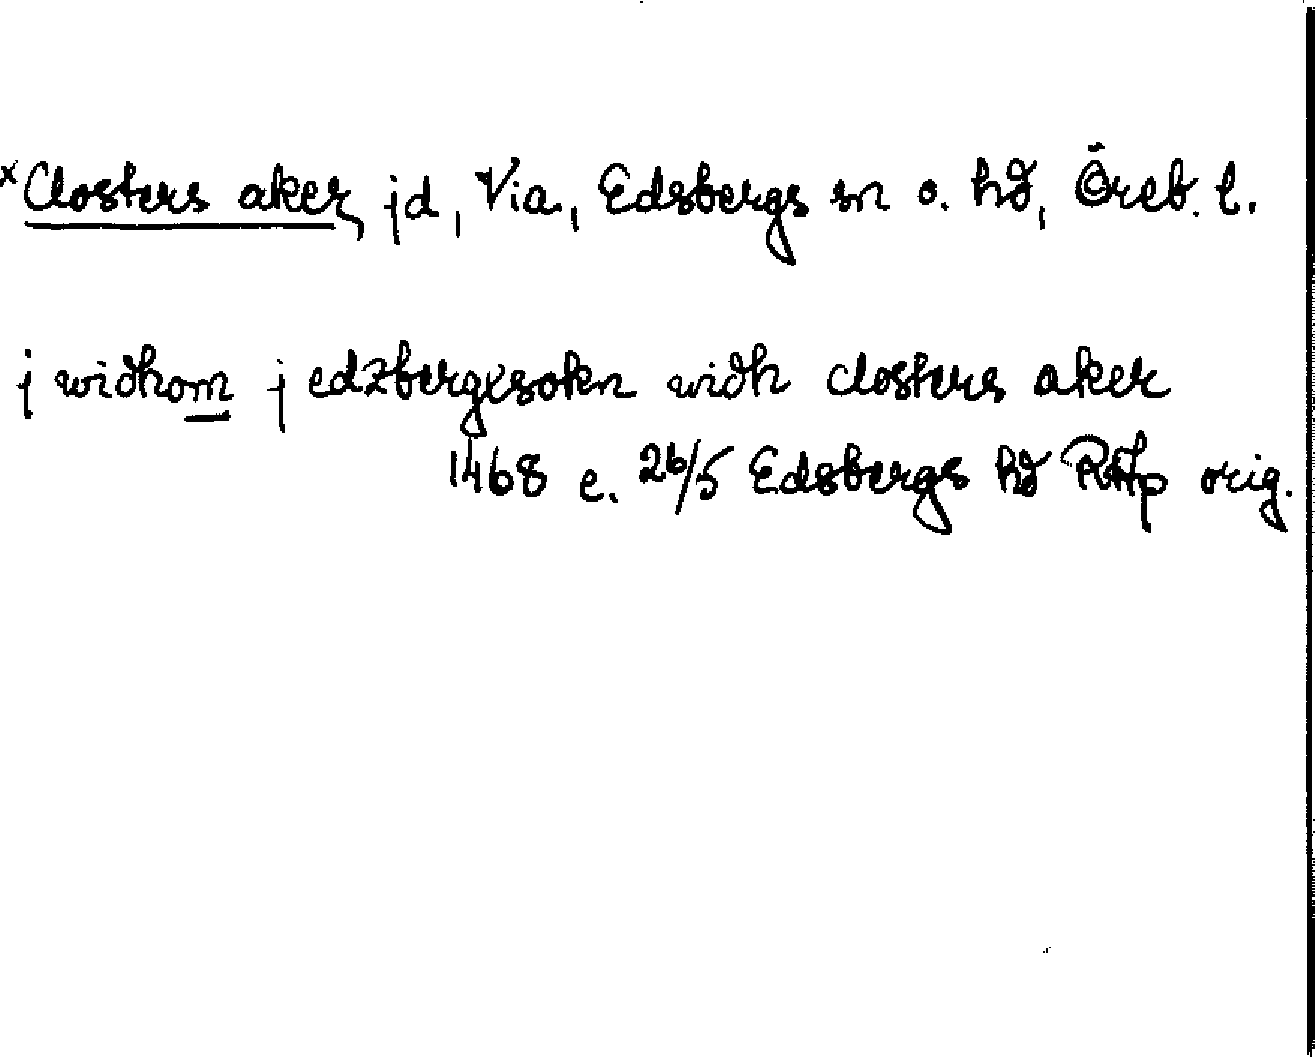 ×Closters aker, jd, Via, Edsbergs sn o. hd, Öreb. l.
j widhom j edzbergxsokn widh closters aker
1468 e. 26/5 Edsbergs hd RAp orig.